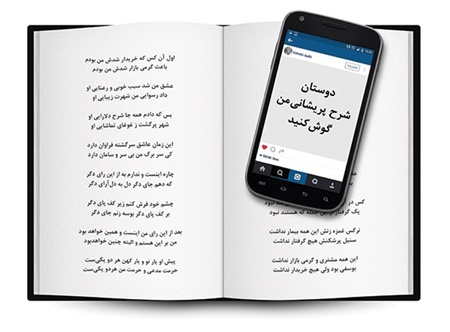 دوستان
شرح پریشانی‌من
گوش‌کنید
کس در
هستند نبود
نرگس غمزه زنش این همه بیمار نداشت
سنبل پرشکنش هیچ گرفتار نداشت
این همه مشتری و گرمی بازار نداشت
یوسفی بود ولی هیچ خریدار نداشت
اول آن کس که خریدار شدش من بودم
باعث گرمی بازار شدش من بودم
عشق من شد سبب خوبی و رعنایی او
داد رسوایی من شهرت زیبایی او
بس که دادم همه جا شرح دلارایی او
شهر پرگشت ز غوغای تماشایی او
این زمان عاشق سرگشته فراوان دارد
کی سر برگ من بی سر و سامان دارد
چاره اینست و ندارم به از این رای دگر
که دهم جای دگر دل به دل‌آرای دگر
چشم خود فرش کنم زیر کف پای دگر
بر کف پای دگر بوسه زنم جای دگر
بعد از این رای من اینست و همین خواهد بود
من بر این هستم و البته چنین خواهدبود
پیش او یار نو و یار کهن هر دو یکی‌ست
حرمت مدعی و حرمت من هردو یکی‌ست